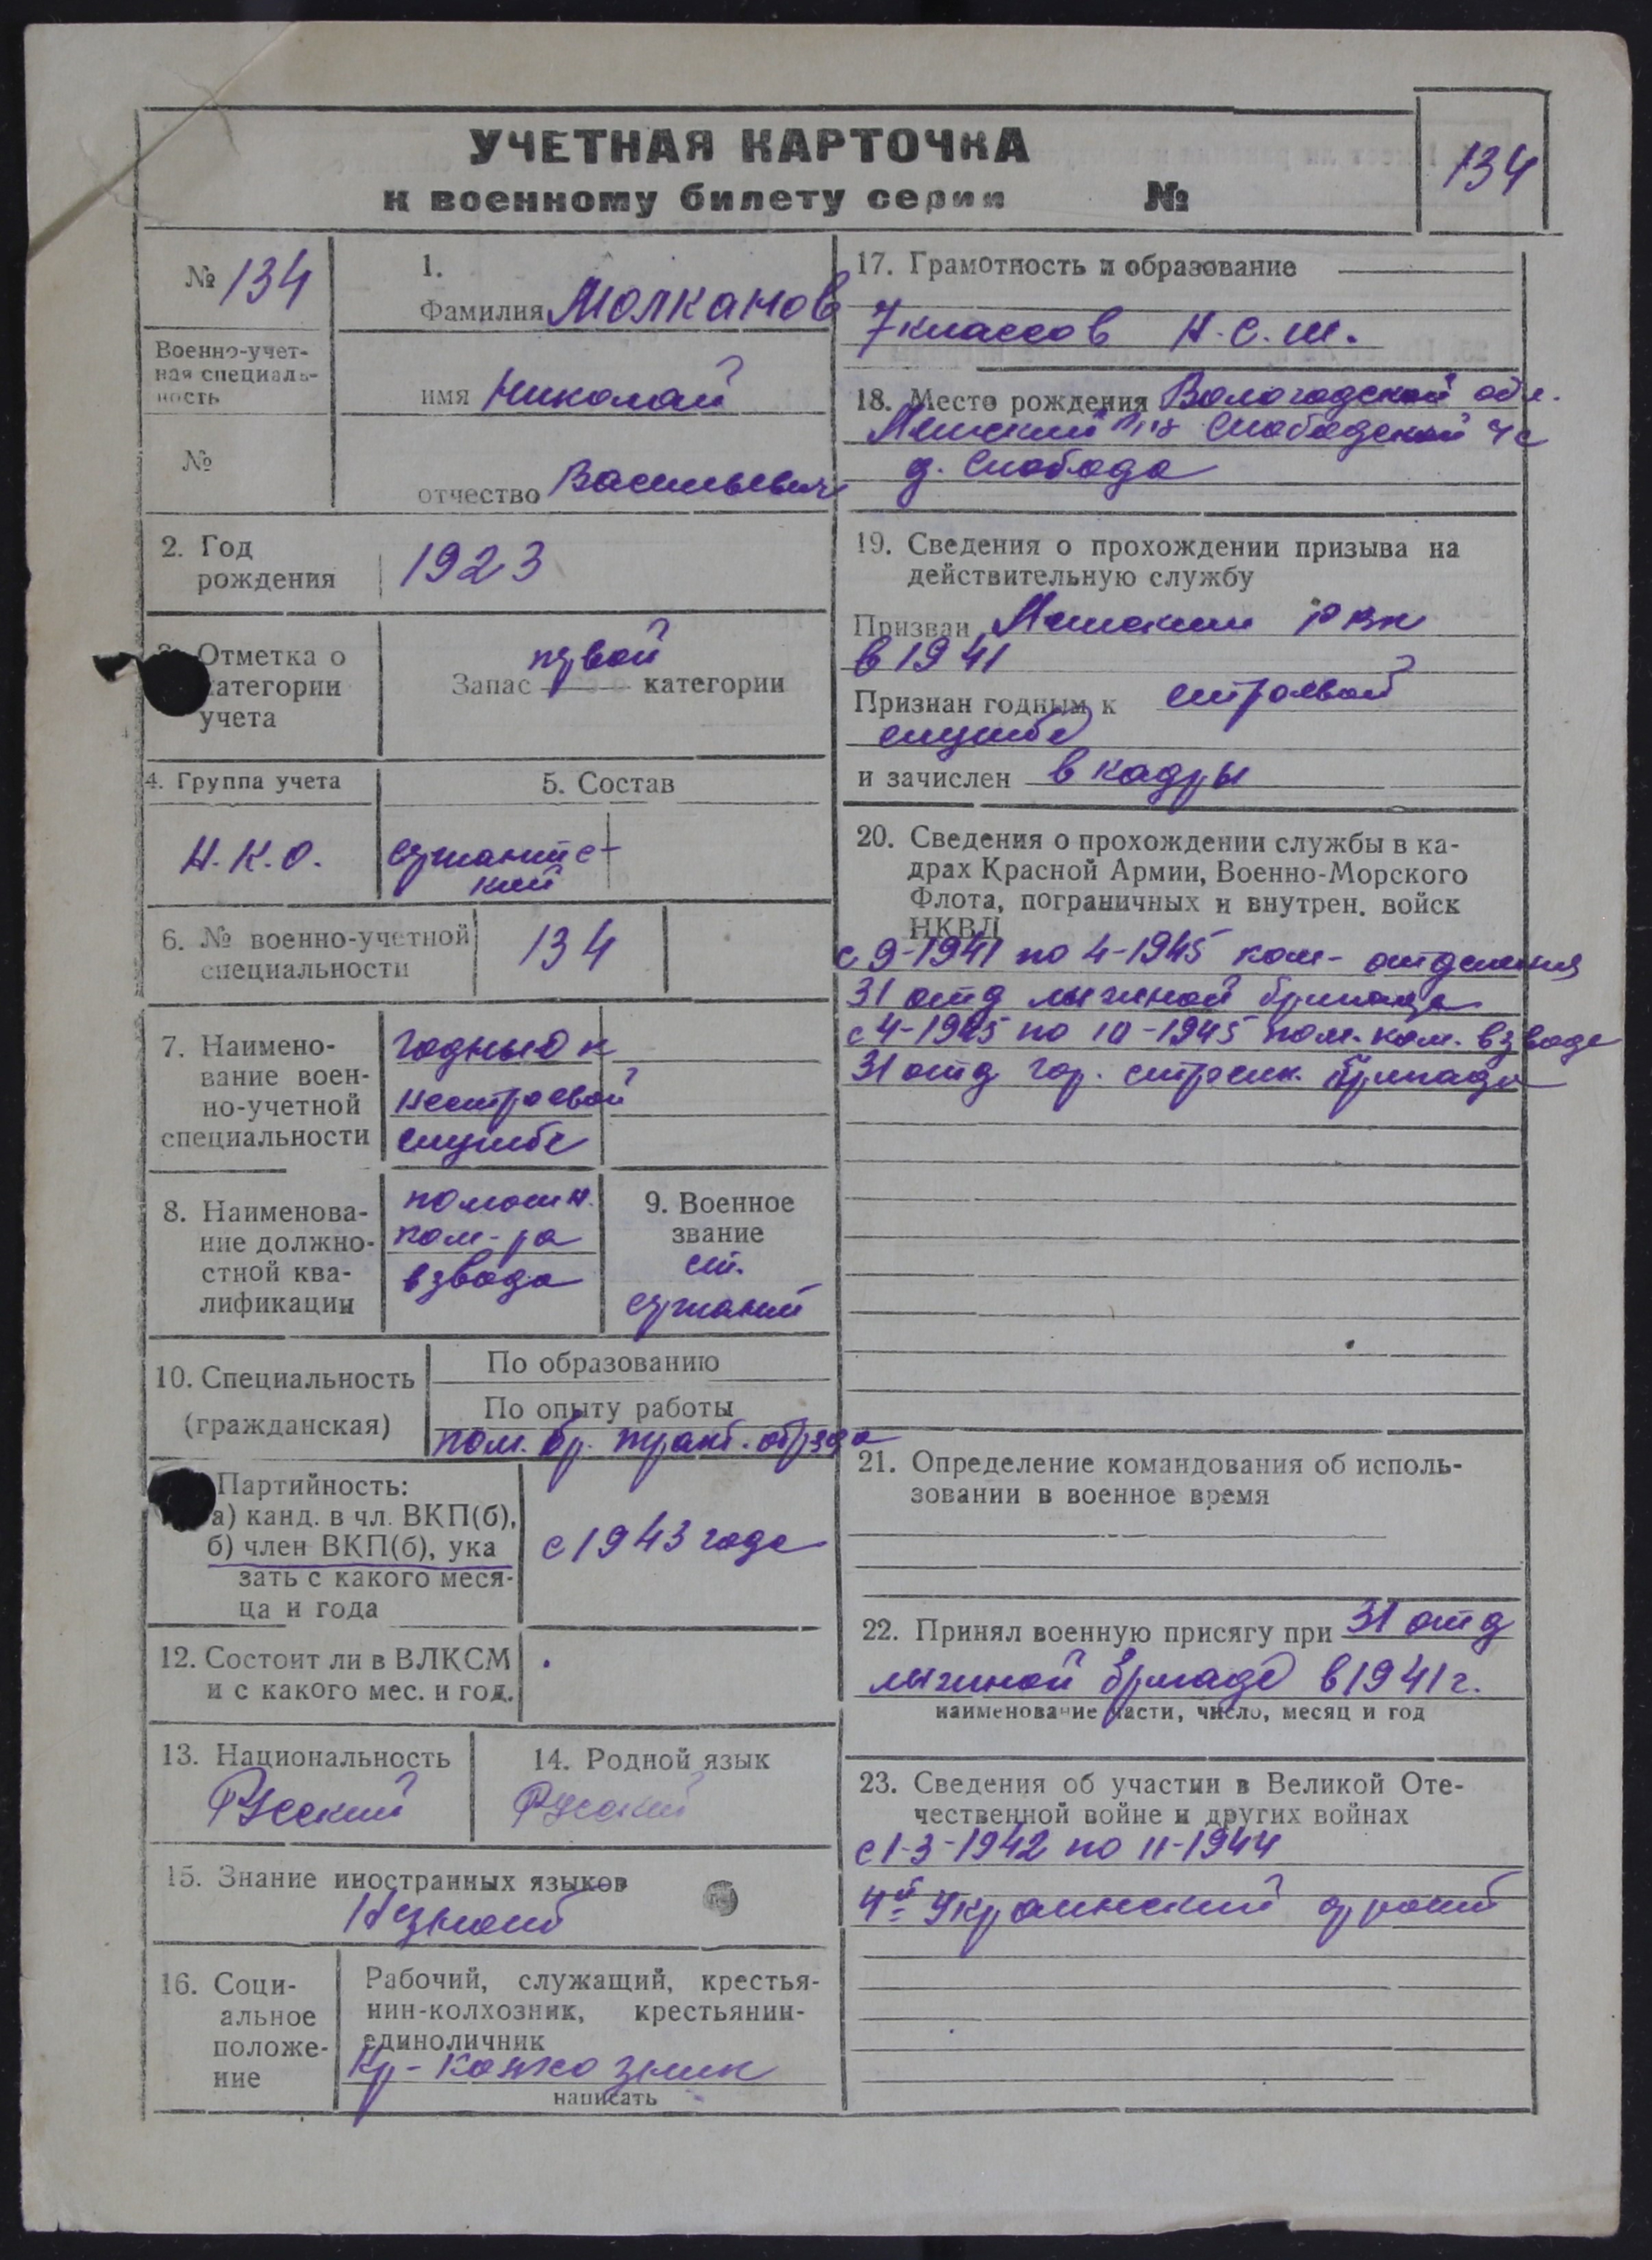 УЧЕТНАЯ КАРТОЧКА
к военному билету серии №
134
№ 134
Военно-учет-
ная специаль-
ность
№
1.
Фамилия Молканов
имя Николай
отчество Васильевич
2. Год
рождения
1923
Отметка о
категории
учета
первой
Запас категории
4. Группа учета
Н.К.О.
5. Состав
сержантс-
кий
6. № военно-учетной
специальности
134
7. Наимено-
вание воен-
но-учетной
специальности
годный к
нестроевой
службе
8. Наименова-
ние должно-
стной ква-
лификации
помощн.
ком-ра
взвода
9. Военное
звание
ст.
сержант
10. Специальность
(гражданская)
По образованию
По опыту работы
пом. бр.
Партийность:
а) канд. в чл. ВКП(б),
б) член ВКП(б), ука
зать с какого меся-
ца и года
с 1943 года
12. Состоит ли в ВЛКСМ
и с какого мес. и год.
13. Национальность
Русский
14. Родной язык
Русский
15. Знание иностранных языков
Незнает
16. Соци-
альное
положе-
ние
Рабочий, служащий, крестья-
нин-колхозник, крестьянин-
единоличник
Кр-колхозник
написать
17. Грамотность и образование
7 классов Н.С.Ш.
18. Место рождения Вологодской обл.
Слободской с/с
д. Слобода
19. Сведения о прохождении призыва на
действительную службу
Призван РВК
в 1941
Признан годным к строевой
службе
и зачислен в кадры
20. Сведения о прохождении службы в ка-
драх Красной Армии, Военно-Морского
Флота, пограничных и внутрен. войск
НКВД
с 9-1941 по 4-1945 ком- отделения
31 отд лыжной бригады
с 4-1945 по 10-1945 пом. ком. взвода
31 отд гор. стрелк. бригады
21. Определение командования об исполь-
зовании в военное время
22. Принял военную присягу при 31 отд
лыжной бригаде в 1941 г.
наименование части, число, месяц и год
23. Сведения об участии в Великой Оте-
чественной войне и других войнах
с 1-3-1942 по 11-1944
4й Украинский фронт